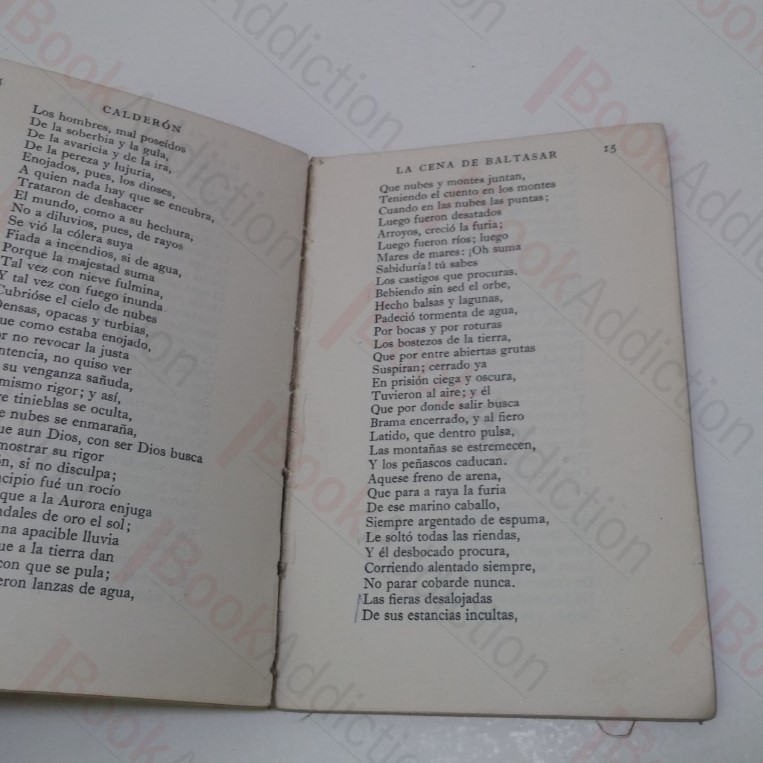 CALDERÓN
Los hombres, mal poseídos
De la soberbia y la gula,
De la avaricia y de la ira,
De la pereza y lujuria,
Enojados, pues, los dioses,
A quien nada hay que se encubra,
Trataron de deshacer
El mundo, como a su hechura,
No a diluvios, pues, de rayos
Se vió la cólera suya
Fiada a incendios, si de agua,
Porque la majestad suma
Tal vez con nieve fulmina,
Y tal vez con fuego inunda
Cubrióse el cielo de nubes
Densas, opacas y turbias,
que como estaba enojado,
no revocar la justa
no quiso ver
su venganza sañuda,
mismo rigor; y así,
tinieblas se oculta,
nubes se enmaraña,
aun Dios, con ser Dios busca
mostrar su rigor
si no disculpa;
fué un rocío
que a la Aurora enjuga
de oro el sol;
apacible lluvia
a la tierra dan
con que se pula;
lanzas de agua,
LA CENA DE BALTASAR 15
Que nubes y montes juntan,
Teniendo el cuento en los montes
Cuando en las nubes las puntas;
Luego fueron desatados
Arroyos, creció la furia;
Luego fueron ríos; luego
Mares de mares: ¡Oh suma
Sabiduría! tú sabes
Los castigos que procuras.
Bebiendo sin sed el orbe,
Hecho balsas y lagunas,
Padeció tormenta de agua,
Por bocas y por roturas
Los bostezos de la tierra,
Que por entre abiertas grutas
Suspiran; cerrado ya
En prisión ciega y oscura,
Tuvieron al aire; y él
Que por donde salir busca
Brama encerrado, y al fiero
Latido, que dentro pulsa,
Las montañas se estremecen,
Y los peñascos caducan.
Aquese freno de arena,
Que para a raya la furia
De ese marino caballo,
Siempre argentado de espuma,
Le soltó todas las riendas,
Y él desbocado procura,
Corriendo alentado siempre,
No parar cobarde nunca.
Las fieras desalojadas
De sus estancias incultas,
BookAddiction